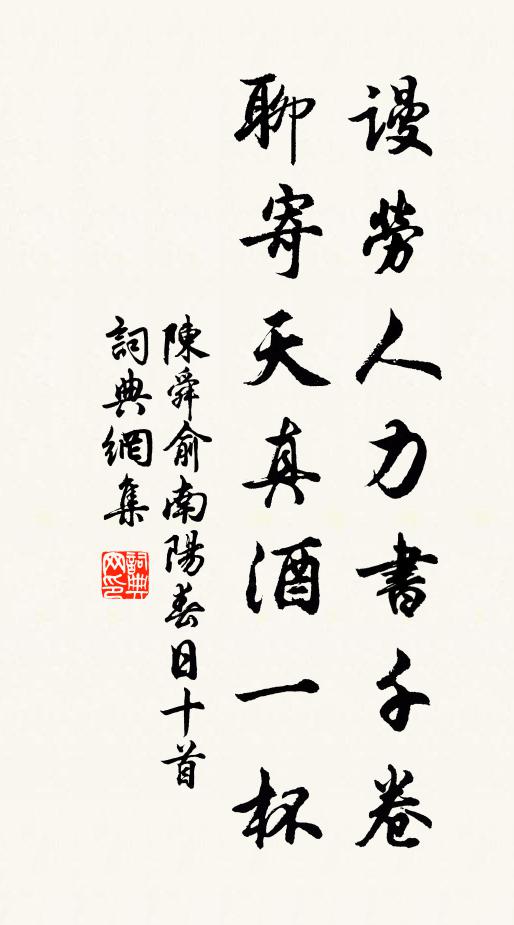 謾勞人力書千卷
聊寄天真酒一杯
陳舜俞南陽春日十首
詞典網集
詞典網印